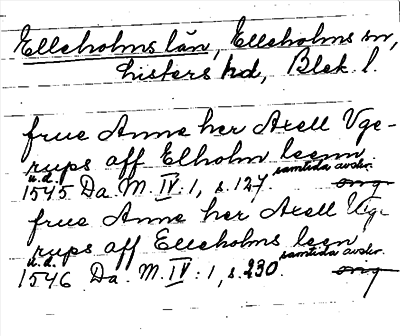 Elleholms län, Elleholms sn,
Listers hd, Blek. l.
frue Anne her Axell Vge-
rups aff Elholm leenn
u.d. samtida avskr.
1545 Da. M. IV: 1, s. 127. orig
frue Anne her Axell Vg-
rups aff Elleholms leen,
u.d. samtida avskr.
1546 Da. M. IV: 1, s. 230. orig